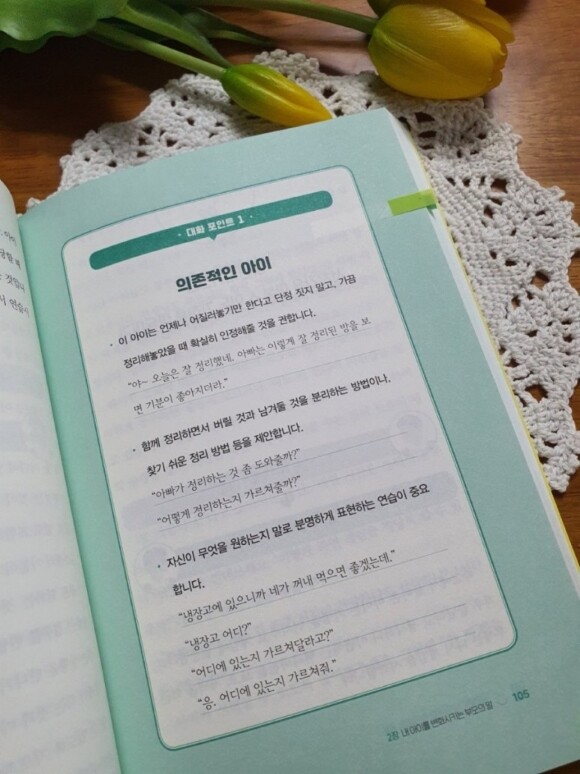 · 대화 포인트 1 ·
의존적인 아이
· 이 아이는 언제나 어질러놓기만 한다고 단정 짓지 말고, 가끔
정리해놓았을 때 확실히 인정해줄 것을 권합니다.
“아~ 오늘은 잘 정리했네. 아빠는 이렇게 잘 정리된 방을 보
면 기분이 좋아지더라.”
· 함께 정리하면서 버릴 것과 남겨둘 것을 분리하는 방법이나,
찾기 쉬운 정리 방법 등을 제안합니다.
“아빠가 정리하는 것 좀 도와줄까?”
“어떻게 정리하는지 가르쳐줄까?”
· 자신이 무엇을 원하는지 말로 분명하게 표현하는 연습이 중요
합니다.
“냉장고에 있으니까 네가 꺼내 먹으면 좋겠는데.”
“냉장고 어디?”
“어디에 있는지 가르쳐달라고?”
“응. 어디에 있는지 가르쳐줘.”
2장 내 아이를 변화시키는 부모의 말 105